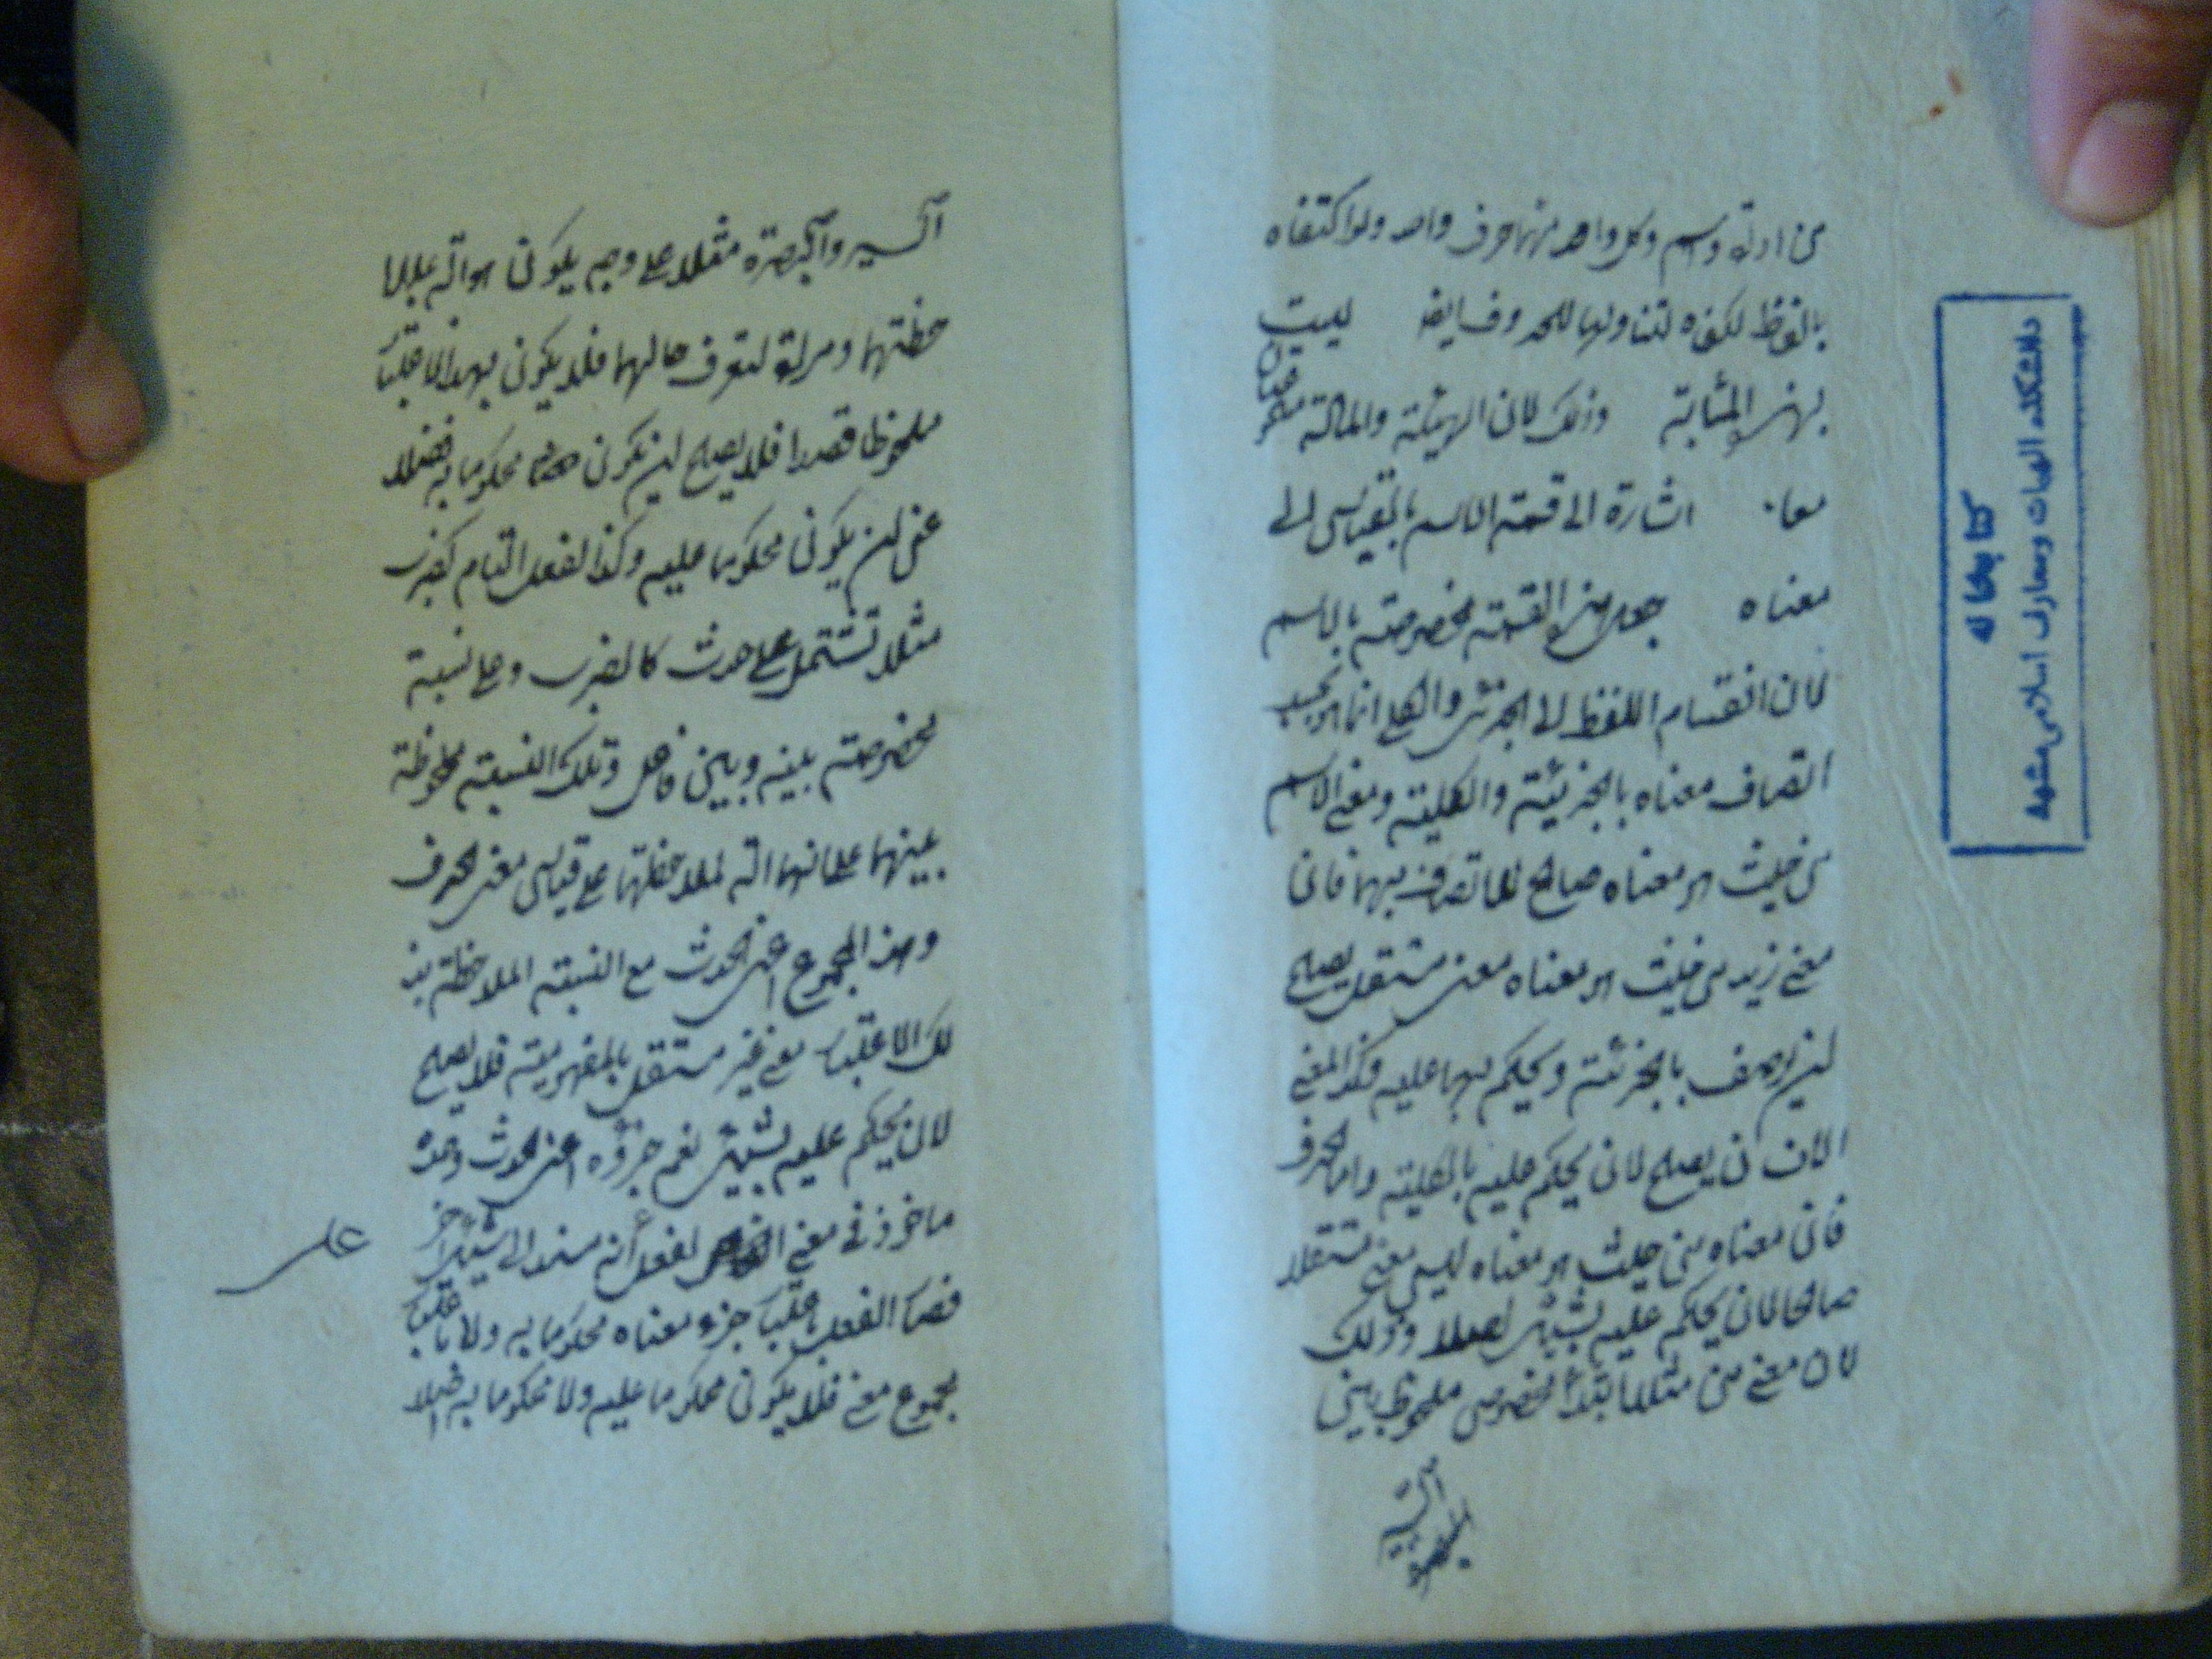 من اداة واسم وكل واحد منهما حرف واحد ولو اكتفاه
بالفظ لكفاه لتناولها للحروف ايضا ليست
بهذه المثابة وذلك لان الهيئة والمادة مسموعتان
معا اشارة الى قسمة الاسم بالقياس الى
معناه جعل هذه القسمة مخصوصة بالاسم
لان انقسام اللفظ الى الجزئي والكلي انما هو بحسب
اتصاف معناه بالجزئية والكلية ومعنى الاسم
من حيث هو معناه صالح للاتصاف بهما فان
معنى زيد من حيث هو معناه معنى مستقل يصلح
لان يوصف بالجزئية ويحكم بها عليه وكذا المعنى
الانسان يصلح لان يحكم عليه بالكلية واما الحرف
فان معناه من حيث هو معناه ليس معنى مستقلا
صالحا لان يحكم عليه بشيء اصلا وذلك
لان معنى من مثلا ابتداء مخصوص ملحوظ بين
السير والبصرة
السير والبصرة مثلا على وجه يكون هو آلة لملا
حظتهما ومرآة لتعرف حالهما فلا يكون بهذا الاعتبار
ملحوظا قصدا فلا يصلح لان يكون محكوما به فضلا
عن ان يكون محكوما عليه وكذا الفعل التام كضرب
مثلا تشتمل على حدث كالضرب وعلى نسبة
مخصوصة بينه وبين فاعل وتلك النسبة ملحوظة
بينهما على انها آلة لملاحظتها على قياس معنى الحرف
وهذا المجموع اعنى الحدث مع النسبة الملاحظة بذ
لك الاعتبار معنى غير مستقل بالمفهومية فلا يصلح
لان يحكم عليه بشيء نعم جزؤه اعنى الحدث وحده
ماخوذ في معنى الفعل أنه مسند الى شيء آخر
فصار الفعل باعتبار جزء معناه محكوما به ولا باعتبار
مجموع معنى فلا يكون محكوما عليه ولا محكوما به اصلا
كتابخانه
دانشكده الهيات ومعارف اسلامى مشهد